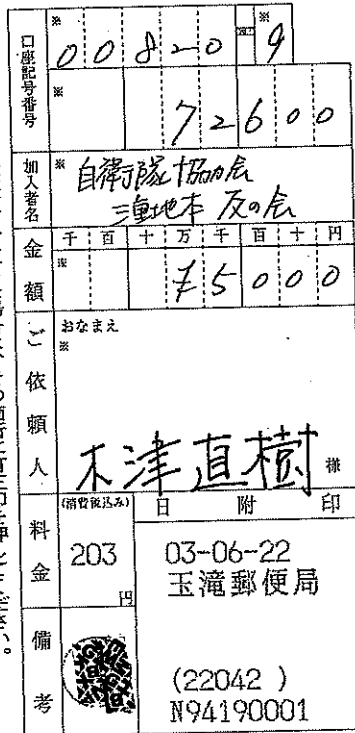 口座記号番号
※ 00820 9
※ 72600
加入者名
※ 自衛隊協力会
三重地本 友の会
金額
千 百 十 万 千 百 十 円
※ ¥5000
ご依頼人
おなまえ
※
木津直樹 様
料金
(消費税込み)
203
円
日附印
03-06-22
玉滝郵便局
(22042 )
N94190001
備考